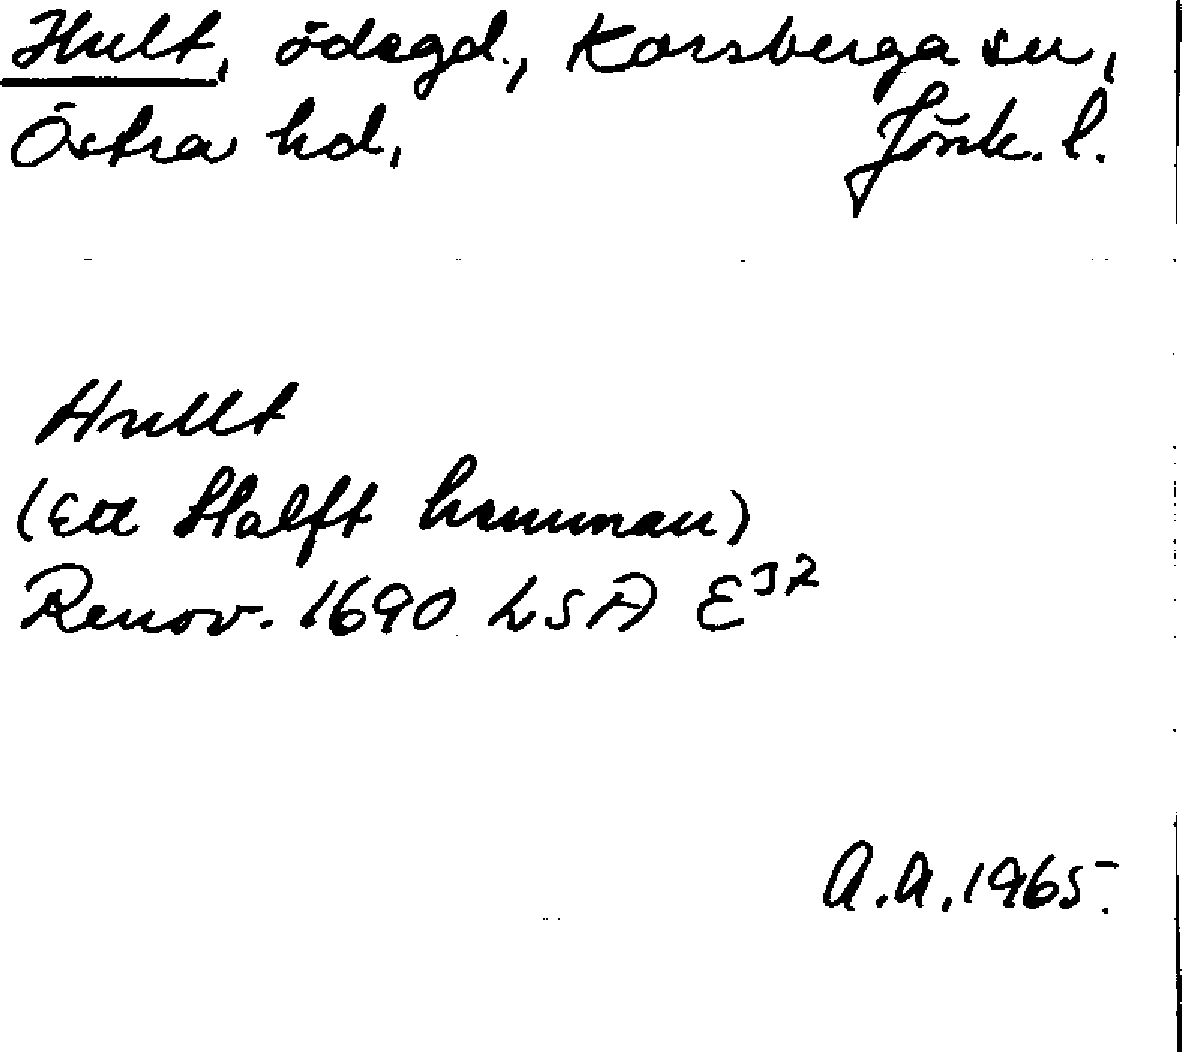 Hult, ödegd., Korsberga sn,
Östra hd, Jönk. l.
Hullt
(Ett Halfft hemman)
Renov. 1690 LSA E37
A.A. 1965.